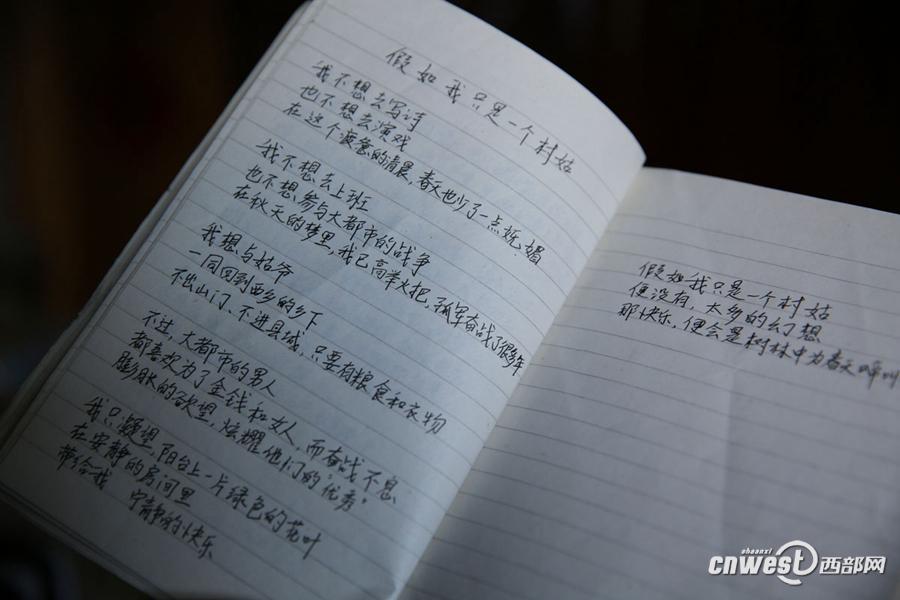 假如我只是一个村姑
我不想去写诗
也不想去演戏
在这个疲惫的清晨，春天也少了一点妩媚
我不想去上班
也不想参与大都市的战争
在秋天的梦里，我已高举火把，孤军奋战了很多年
我想与姑爷
一同回到西乡的乡下
不出山门、不进县城，只要有粮食和衣物
不过，大都市的男人
都喜欢为了金钱和女人，而奋战不息
膨胀的欲望，炫耀他们的优秀！
我只凝望，阳台上一片绿色的花叶
在安静的房间里
带给我 宁静的快乐
假如我只是一个村姑
便没有，太多的幻想
那快乐，便会是树林中为春天
shaanxi
cnwest 西部网